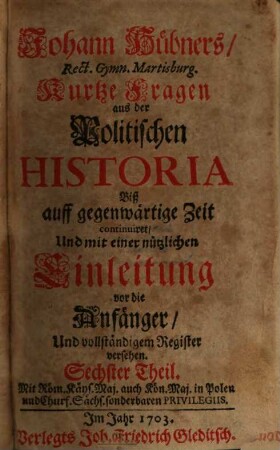 Johann Hübners/
Rect. Gymn. Martisburg.
Kurtze Fragen
aus der
Politischen
HISTORIA
Biß
auff gegenwärtige Zeit
continuiret/
Und mit einer nützlichen
Einleitung
vor die
Anfänger/
Und vollständigem Register
versehen.
Sechster Theil.
Mit Röm. Käys. Maj. auch Kön. Maj. in Polen
und Churf. Sächs. sonderbaren PRIVILEGIIS.
Im Jahr 1703.
Verlegts Joh. Friedrich Gleditsch.